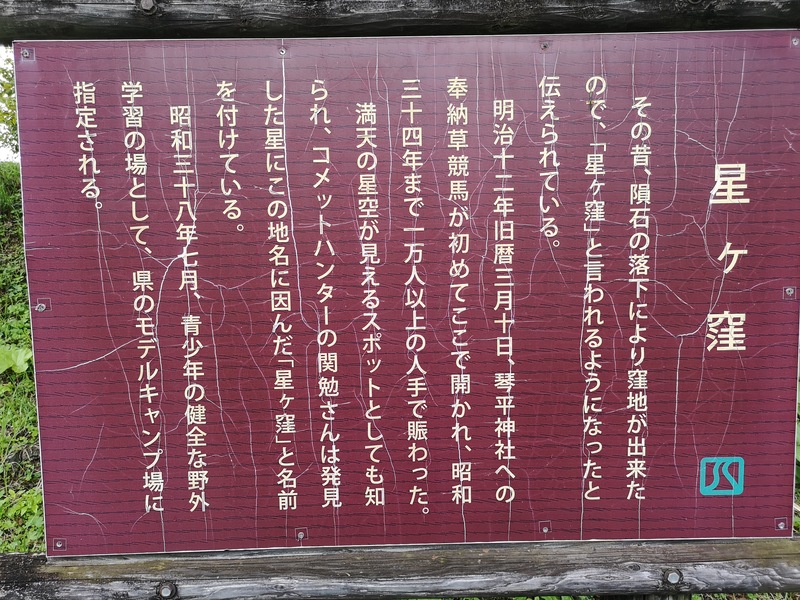 星ヶ窪
その昔、隕石の落下により窪地が出来た
ので、「星ヶ窪」と言われるようになったと
伝えられている。
明治十二年旧暦三月十日、琴平神社への
奉納草競馬が初めてここで開かれ、昭和
三十四年まで一万人以上の人手で賑わった。
満天の星空が見えるスポットとしても知
られ、コメットハンターの関勉さんは発見
した星にこの地名に因んだ「星ヶ窪」と名前
を付けている。
昭和三十八年七月、青少年の健全な野外
学習の場として、県のモデルキャンプ場に
指定される。